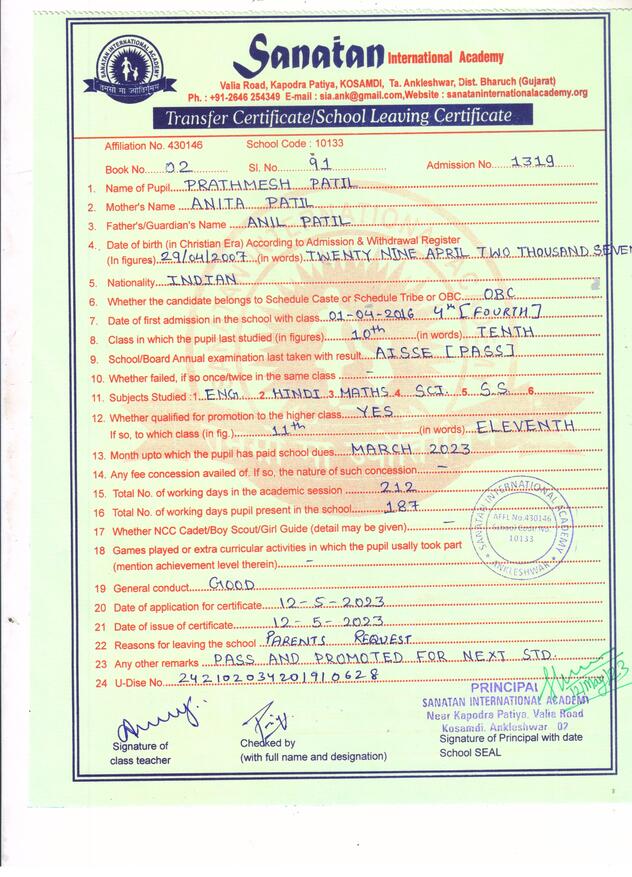 SANATAN INTERNATIONAL ACADEMY
तमसो मा ज्योतिर्गमय
Sanatan International Academy
Valia Road, Kapodra Patiya, KOSAMDI, Ta. Ankleshwar, Dist. Bharuch (Gujarat)
Ph. : +91-2646 254349 E-mail : sia.ank@gmail.com,Website : sanataninternationalacademy.org
Transfer Certificate/School Leaving Certificate
Affiliation No. 430146 School Code : 10133
Book No. 02 Sl. No. 91 Admission No. 1319
1. Name of Pupil PRATHMESH PATIL
2. Mother's Name ANITA PATIL
3. Father's/Guardian's Name ANIL PATIL
4. Date of birth (in Christian Era) According to Admission & Withdrawal Register
(In figures) 29/04/2007 (in words) TWENTY NINE APRIL TWO THOUSAND SEVEN
5. Nationality INDIAN
6. Whether the candidate belongs to Schedule Caste or Schedule Tribe or OBC OBC
7. Date of first admission in the school with class 01-04-2016 4th [FOURTH]
8. Class in which the pupil last studied (in figures) 10th (in words) TENTH
9. School/Board Annual examination last taken with result AISSE [PASS]
10. Whether failed, if so once/twice in the same class -
11. Subjects Studied : 1. ENG 2. HINDI 3. MATHS 4. SCI. 5. S.S 6.
12. Whether qualified for promotion to the higher class YES
If so, to which class (in fig.) 11th (in words) ELEVENTH
13. Month upto which the pupil has paid school dues MARCH 2023
14. Any fee concession availed of. If so, the nature of such concession -
15. Total No. of working days in the academic session 212
16 Total No. of working days pupil present in the school 187
17 Whether NCC Cadet/Boy Scout/Girl Guide (detail may be given) -
18 Games played or extra curricular activities in which the pupil usally took part
(mention achievement level therein) -
SANATAN INTERNATIONAL ACADEMY
AFFL No.430146
School Code No.
10133
ANKLESHWAR
19 General conduct GOOD
20 Date of application for certificate 12-5-2023
21 Date of issue of certificate 12-5-2023
22 Reasons for leaving the school PARENTS REQUEST
23 Any other remarks PASS AND PROMOTED FOR NEXT STD.
24 U-Dise No. 242102034201910628
12/May/23
PRINCIPAL
SANATAN INTERNATIONAL ACADEMY
Near Kapodra Patiya, Valia Road
Kosamdi, Ankleshwar 02
Signature of class teacher
Checked by
(with full name and designation)
Signature of Principal with date
School SEAL